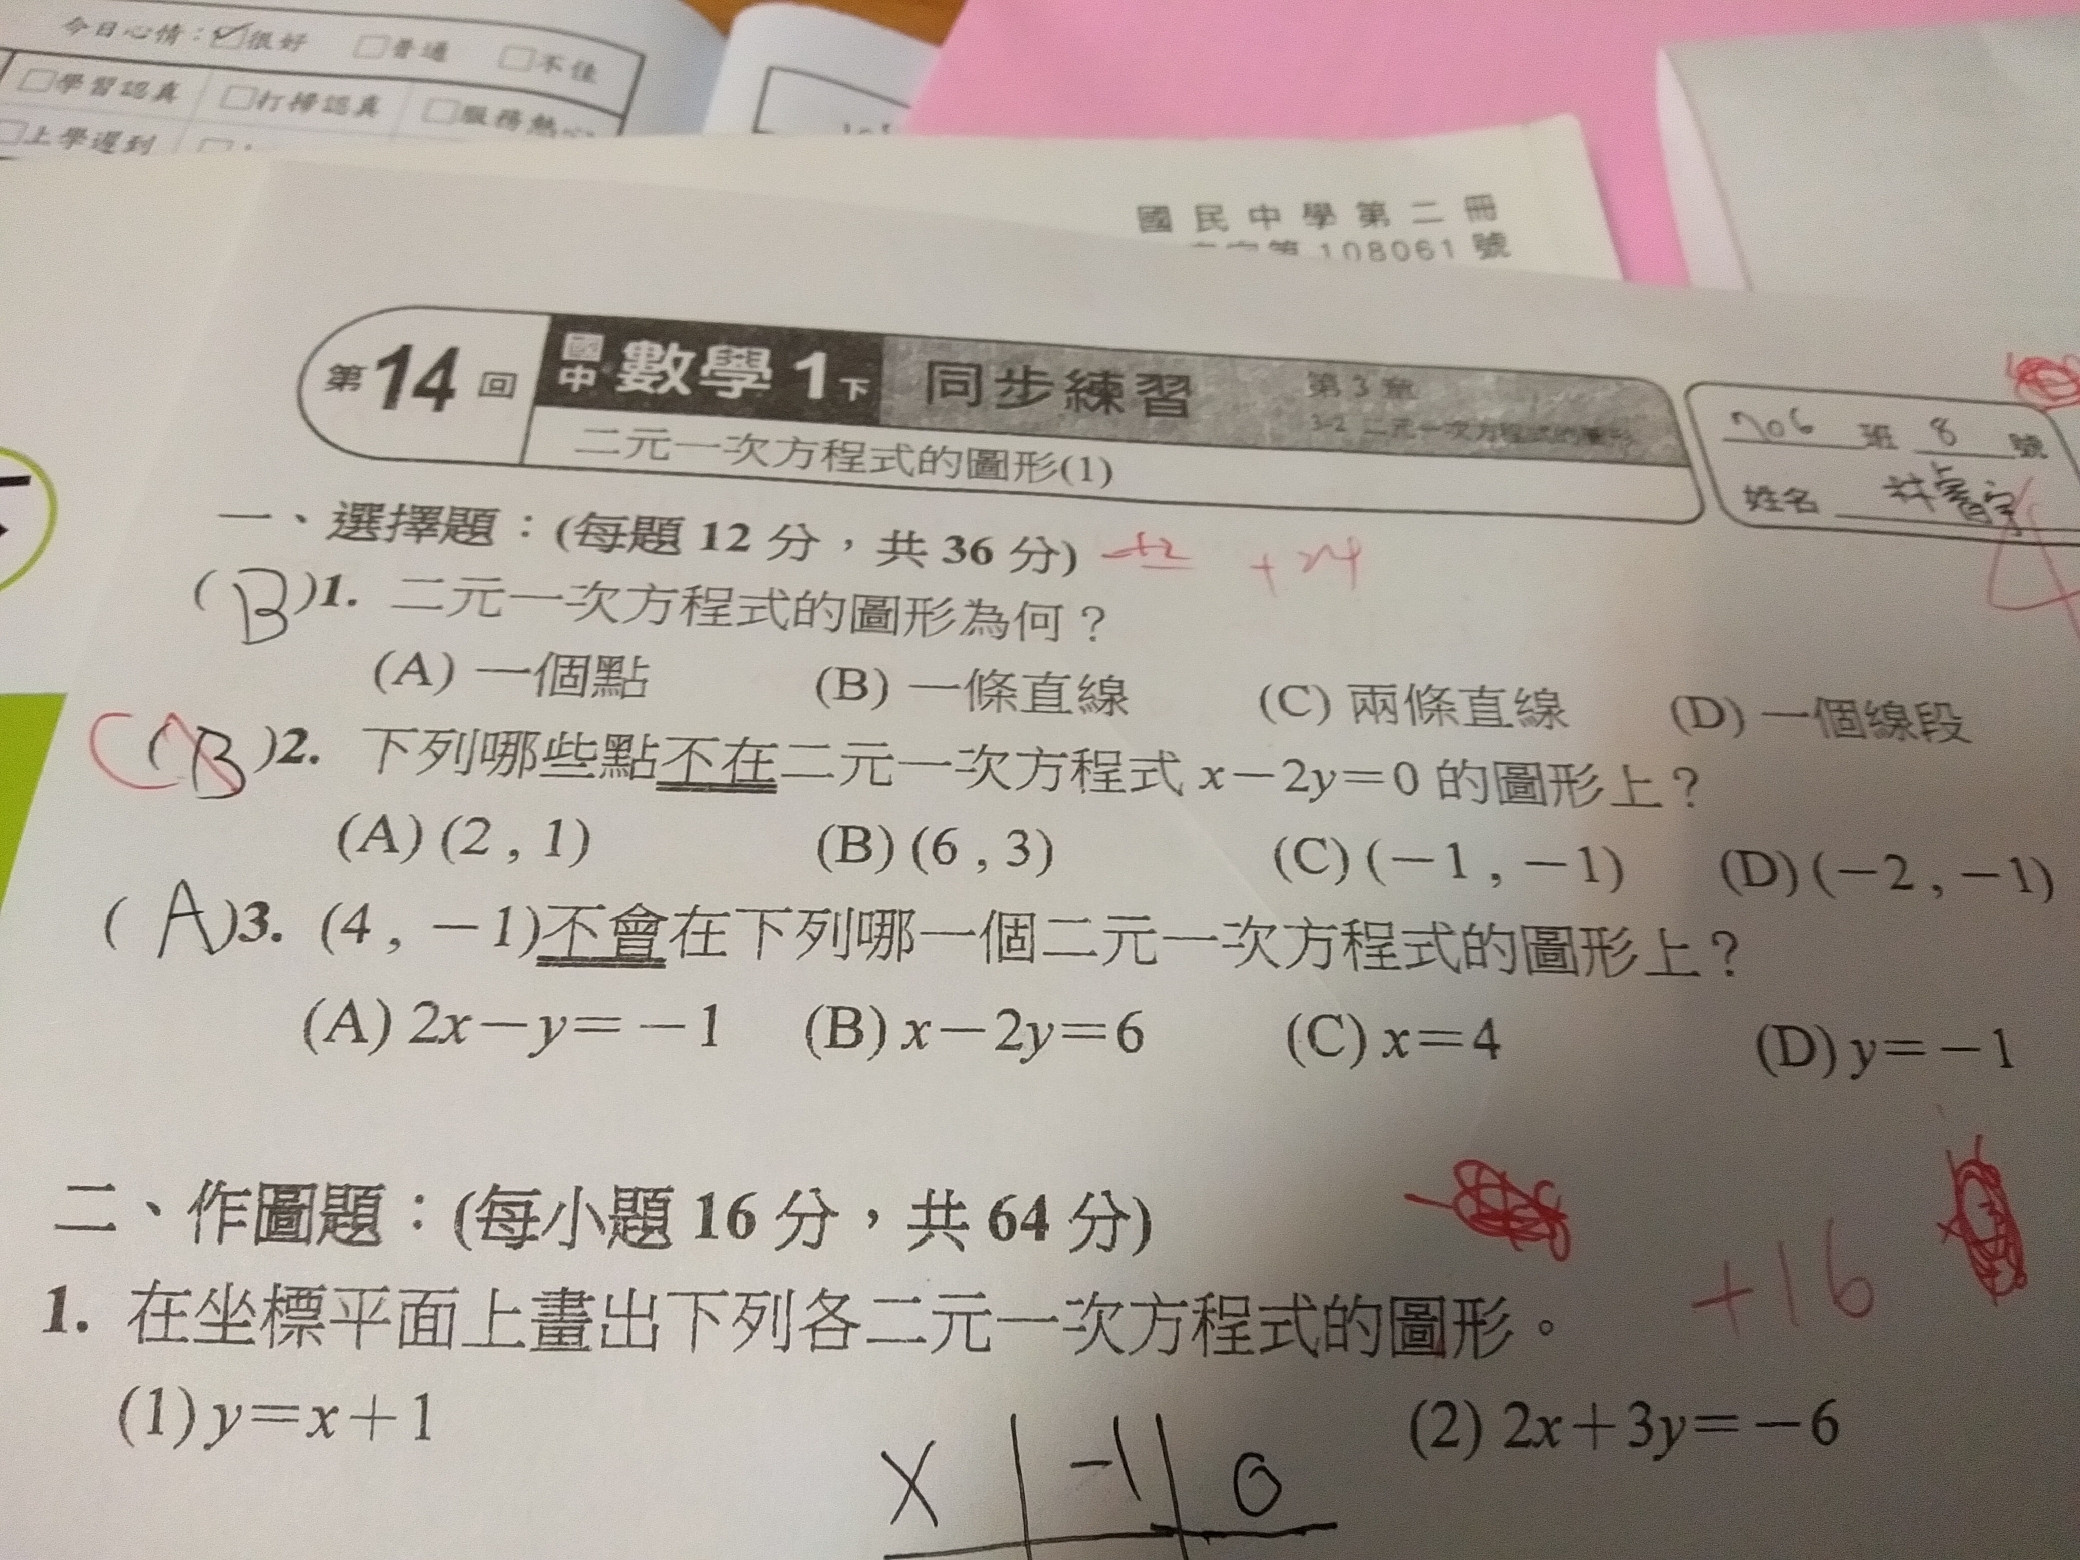 今日心情：☑很好 □普通 □不佳
□學習認真 □打掃認真 □服務熱心
□上學遲到
國民中學第二冊
第108061號
第14回 國中數學1下 同步練習 第3章
3-2 二元一次方程式的圖形
二元一次方程式的圖形(1)
706班 8號
姓名 林
一、選擇題：(每題12分，共36分) +24
(B)1. 二元一次方程式的圖形為何？
(A) 一個點 (B) 一條直線 (C) 兩條直線 (D) 一個線段
C(B)2. 下列哪些點不在二元一次方程式x－2y＝0的圖形上？
(A) (2 , 1) (B) (6 , 3) (C) (－1 , －1) (D) (－2 , －1)
(A)3. (4 , －1)不會在下列哪一個二元一次方程式的圖形上？
(A) 2x－y＝－1 (B) x－2y＝6 (C) x＝4 (D) y＝－1
二、作圖題：(每小題16分，共64分)
+16
1. 在坐標平面上畫出下列各二元一次方程式的圖形。
(1) y＝x＋1 (2) 2x＋3y＝－6
x | -1 | 0